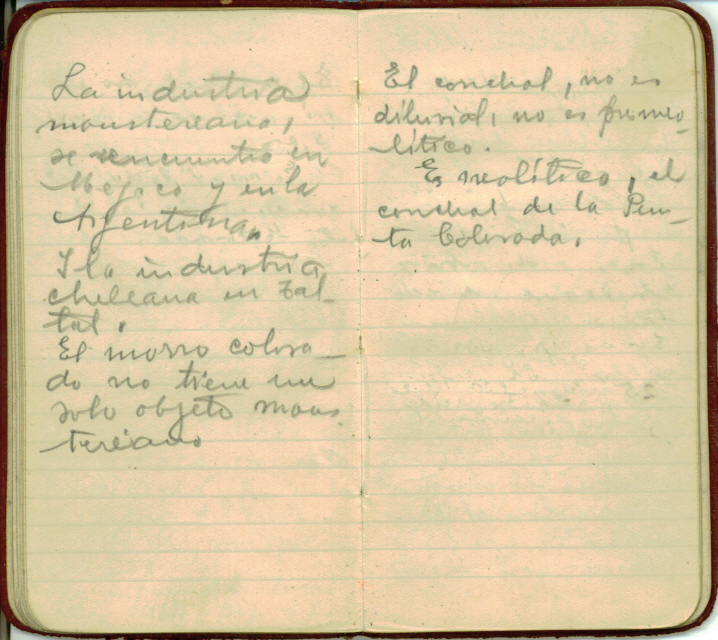 La industria
moustereano,
se encuentra en
Méjico y en la
Argentina,
I la industria
chelleana en Tal-
tal.
El morro colora-
do no tiene un
solo objeto mous
tereano
El conchal, no es
diluvial, no es
lítico.
Es neolítico, el
conchal de la Pun-
ta Colorada.